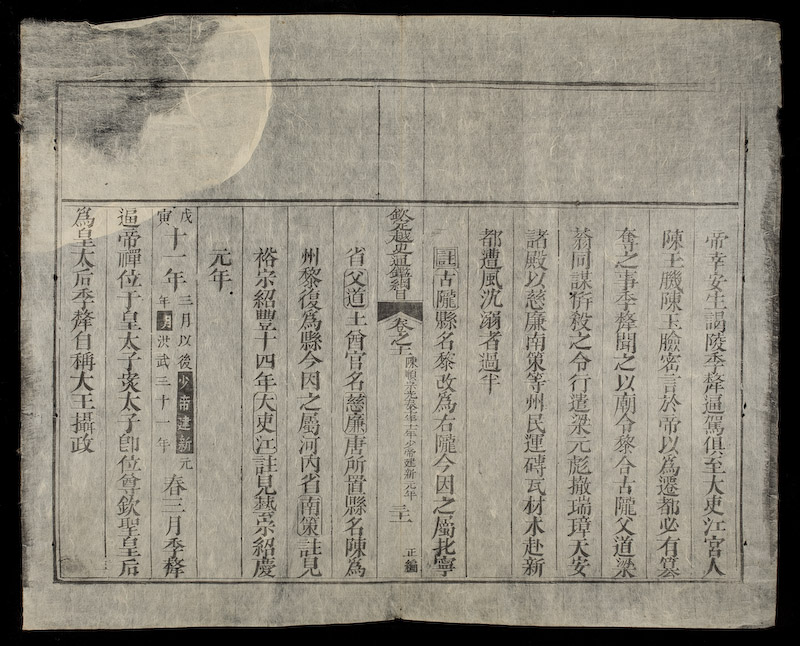 帝幸安生謁陵季犛逼駕俱至大吏江宮人
陳玉Machine陳玉臉密言於帝以爲遷都必有篡
奪之事季犛聞之以廟令黎合古隴父道梁
翁同謀幷殺之令行遣梁元彪撤瑞璋天安
諸殿以慈廉南策等州民運磚瓦材木赴新
都遭風沈溺者過半
註古隴縣名黎改爲右隴今因之屬北寧
欽定越史通鑑綱目 卷之十一 陳順宗光泰十一年少帝建新元年 三十一 正編
省父道土酋官名慈廉唐所置縣名陳爲
州黎復爲縣今因之屬河內省南策註見
裕宗紹豐十四年大吏江註見藝宗紹慶
元年
戊寅十一年三月以後少帝建新元年明洪武三十一年春三月季犛
逼帝禪位于皇太子𭶚太子卽位尊欽聖皇后
爲皇太后季犛自稱大王攝政